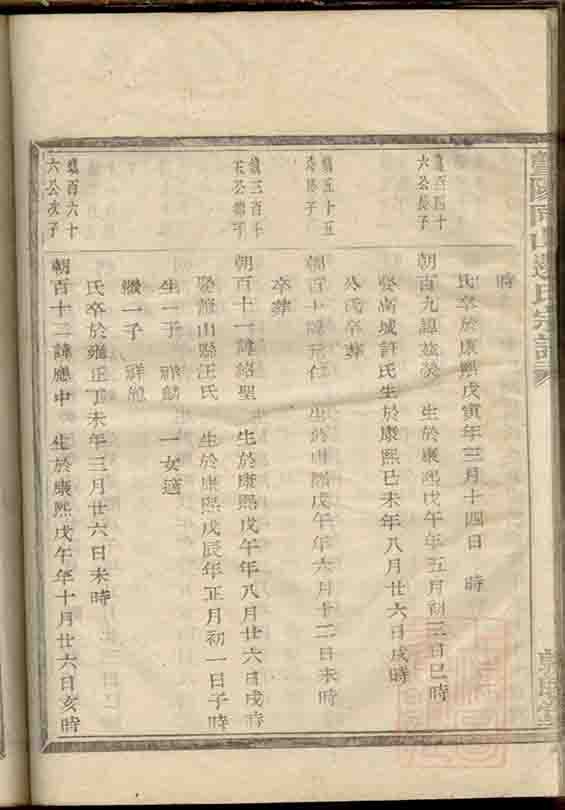 時
氏卒於康熙戊寅年三月十四日 時
六公長子
朝百九諱 生於康熙戊午年五月初三日巳時
娶高城許氏生於康熙己未年八月廿六日戌時
公氏卒葬
五十五
朝百十諱 生於康熙戊午年六月十二日未時
卒葬
三百十
朝百十一諱紹聖 生於康熙戊午年八月廿六日戌時
娶 山縣汪氏 生於康熙戊辰年正月初一日子時
生一子 一女適
繼一子
氏卒於雍正丁未年三月廿六日未時
百六十
六公次子
朝百十二諱應中 生於康熙戊午年十月廿六日亥時
暨陽 南 山 邊氏宗譜